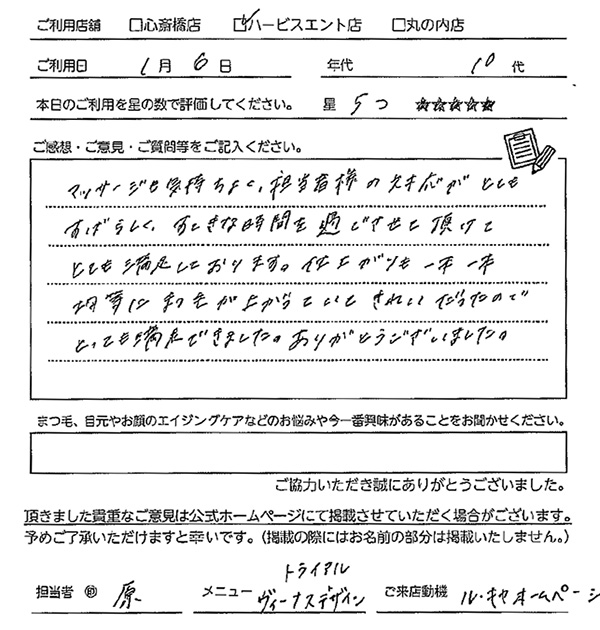 ご利用店舗 □心斎橋店 ☑ハービスエント店 □丸の内店
ご利用日 1月6日 年代 10代
本日のご利用を星の数で評価してください。 星 5つ ★★★★★
ご感想・ご意見・ご質問等をご記入ください。
マッサージも気持ちよく、担当者様の対応がとても
すばらしく、すてきな時間を過ごさせて頂けて
とても満足しております。仕上がりも一本一本
均等にまつ毛が上がっていてきれいだったので
とっても満足できました。ありがとうございました。
まつ毛、目元やお顔のエイジングケアなどのお悩みや今一番興味があることをお聞かせください。
ご協力いただき誠にありがとうございました。
頂きました貴重なご意見は公式ホームページにて掲載させていただく場合がございます。
予めご了承いただけますと幸いです。(掲載の際にはお名前の部分は掲載いたしません。)
担当者 ㊞ 原 メニュー トライアル ヴィーナスデザイン ご来店動機 ル・キャホームページ